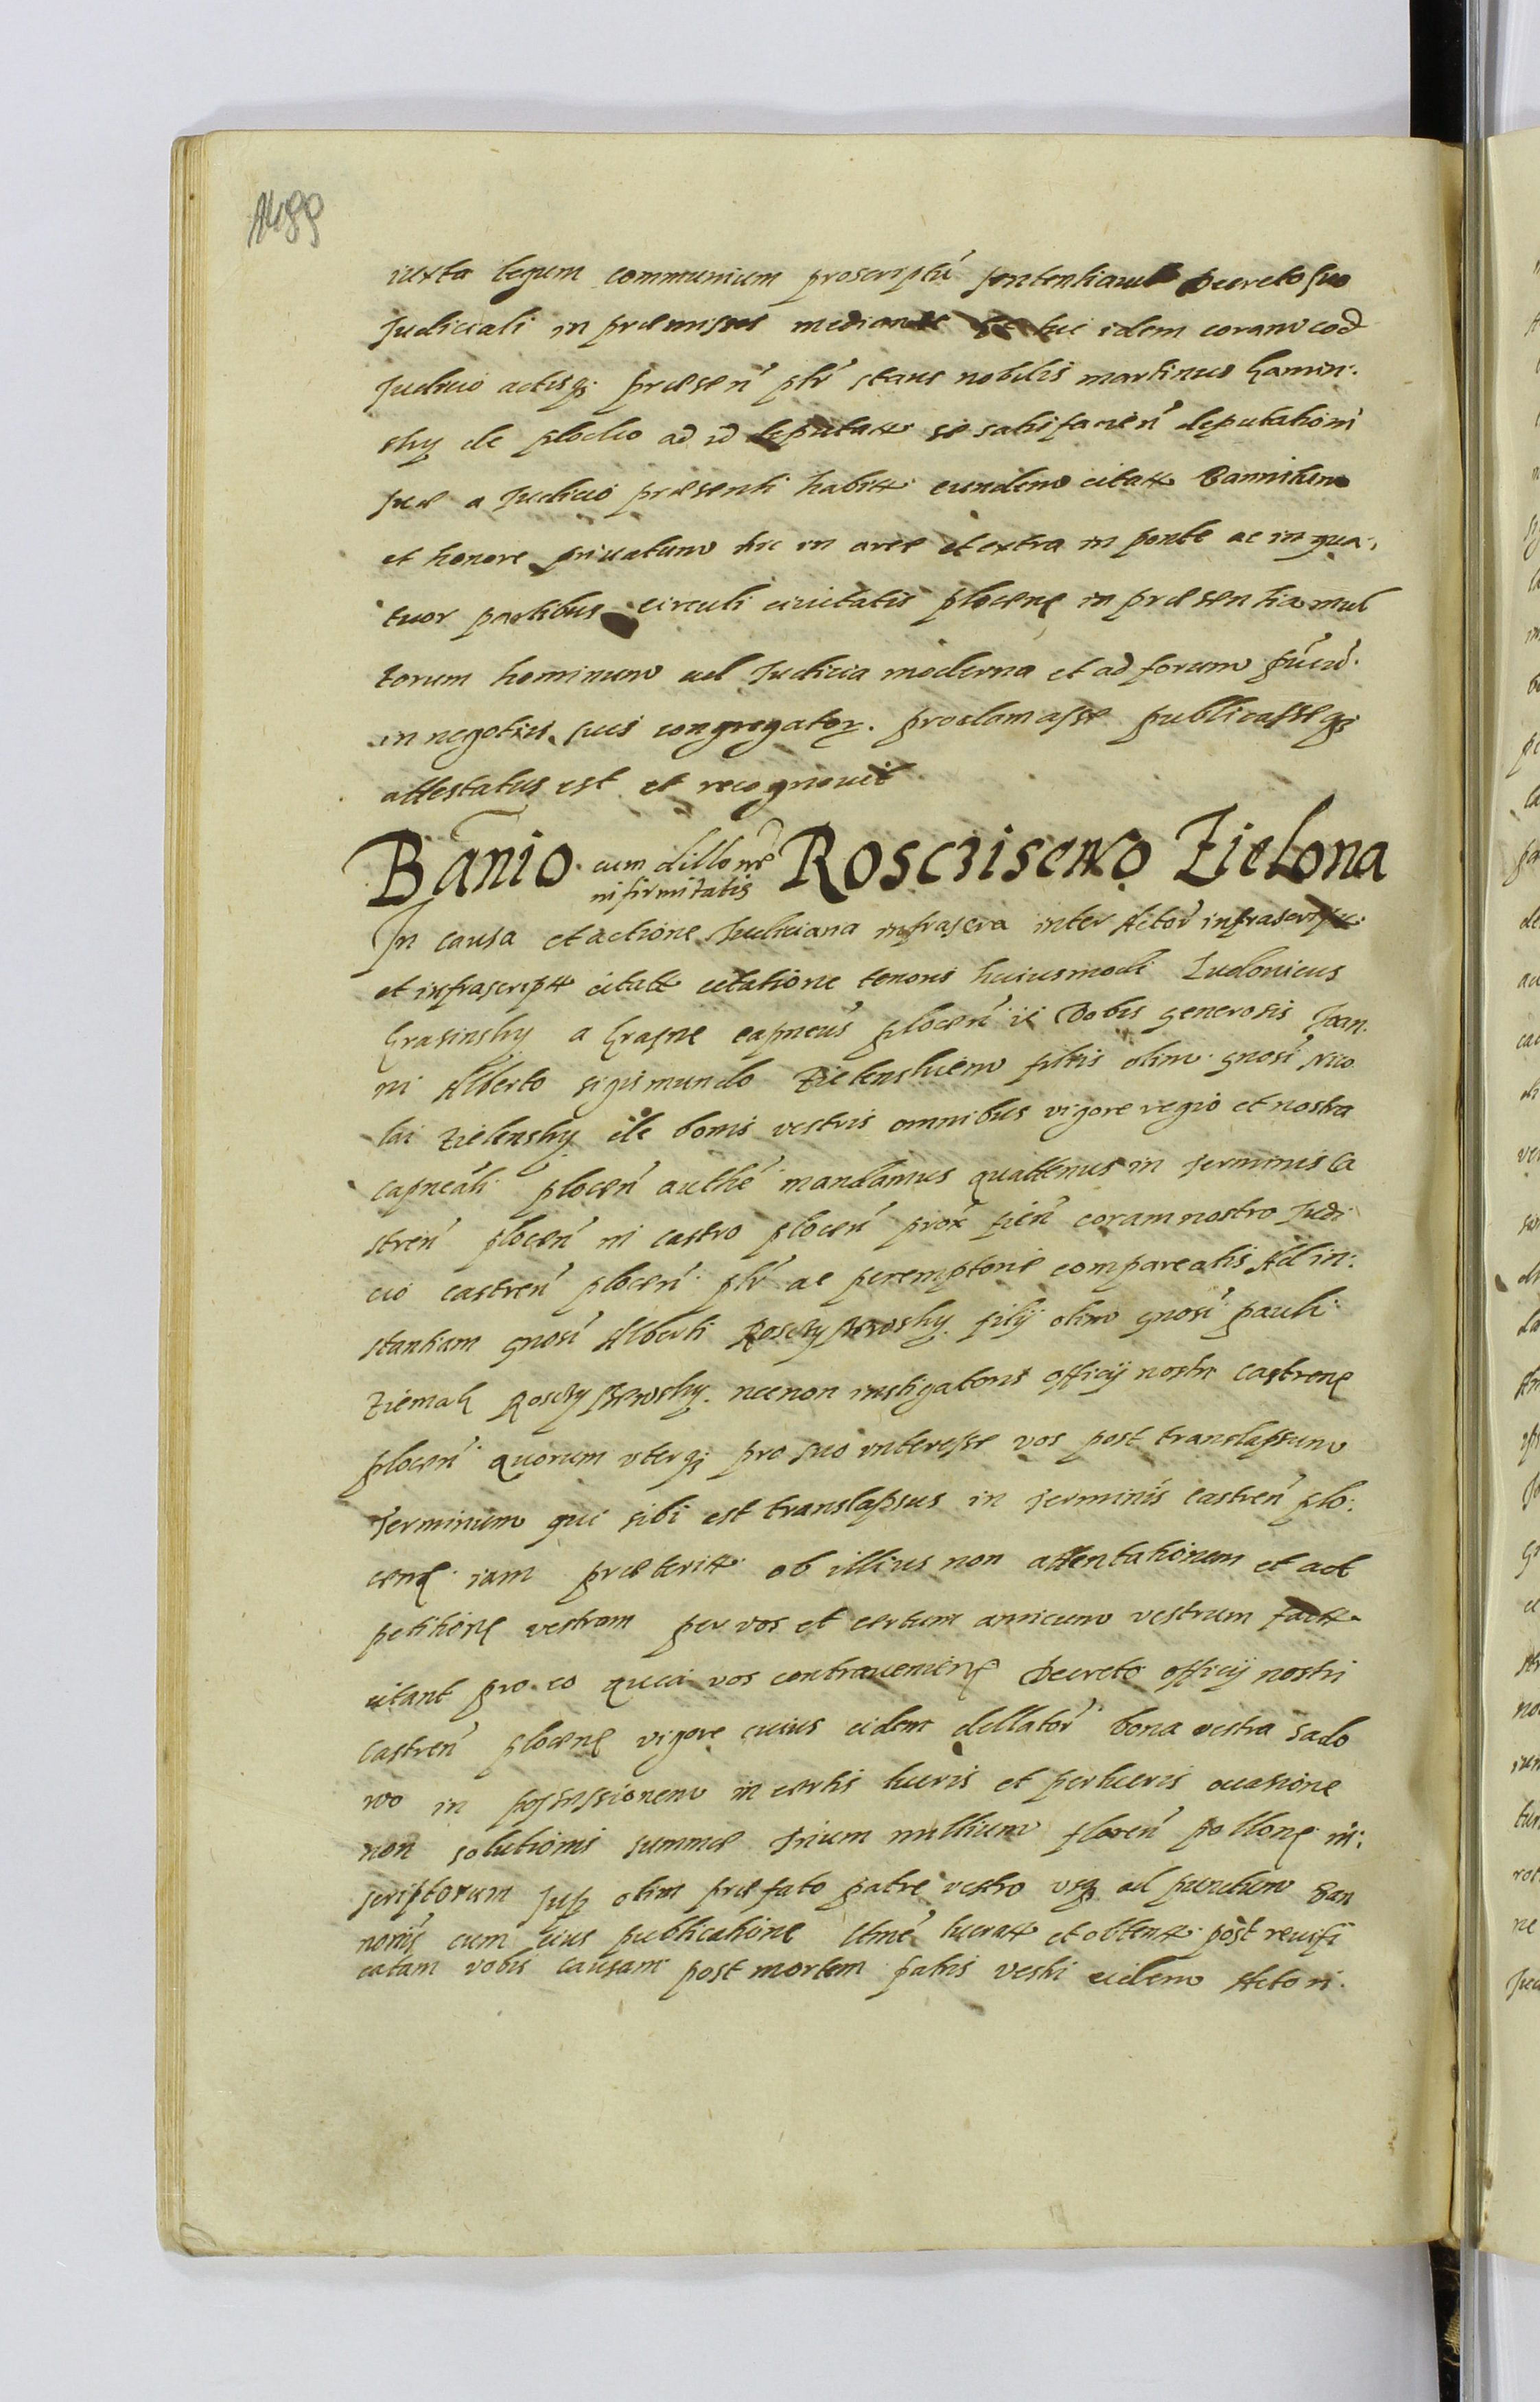 1499
iuxta legum communium proscriptũ sententiauit Decreto suo
Judiciali in præmissis mediante Et hic idem coram eod
Judicio actisq; præsen̄ plr̄ stans nobilis martinus kamin:
sky de plocko ad id deputatt se satisfacien̄ deputationi
suæ a Judicio præsenti habitt eundem citatt Bannitum
et honore priuatum hic in arce et extra in ponte ac in qua,
tuor partibus circuli ciuitatis plocens in præsentia mul
torum hominum ad Judicia moderna et ad forum
in negotiis suis congregator. proclamasse publicasseq;
attestatus est et recognouit
Banio cum dillone infirmitatis Roscziszewo Zielona
In causa et actione Judiciaria infrascra inter Actor̄ infrascript
et infrascriptt citatt citatione tenoris huiusmodi Ludouicus
Krasinsky a Krasne capneus plocen̄ Vobis generosis Joan.
ni Alberto sigismundo Zielenskiem filiis olim gnosi Nico
lai Zielensky de bonis vestris omnibus vigore regio et nostra
capneali plocen̄ authe mandamus quattenus in terminis Ca
stren̄ plocen̄ in castro plocen̄ prox̄ fien̄ coram nostro Judi
cio castren̄ plocen̄ plr̄ ac peremptorie compareatis Ad in:
stantiam gnosi Alberti Rosczyszewsky filij olim gnosi pauli
Ziemak Rosczyszewsky. necnon instigatoris officij nostri castrens
plocen̄ quorum vterq; pro suo interesse vos post translapsum
Terminum qui sibi est translapsus in terminis castren̄ plo:
cens iam præteritt ob illius non attentationem et ad
petitions vestram per vos et certum amicum vestrum factt
citant pro eo quia vos contrauenien̄s Decreto officij nostri
Castren̄ plocens vigore cuius eidem dellator̄ bona vestra Sado
wo in possessionem in certis lucris et perlucris occasione
non solutionis summæ Trium millium floren̄ pollons in:
scriptorum sup olim præfato patre vestro vsq ad punctum Ban
nonis cum eius publicatione ltme lucratt et obtentt post reuisi
catam vobis causam post mortem patris vestri eidem Actori.